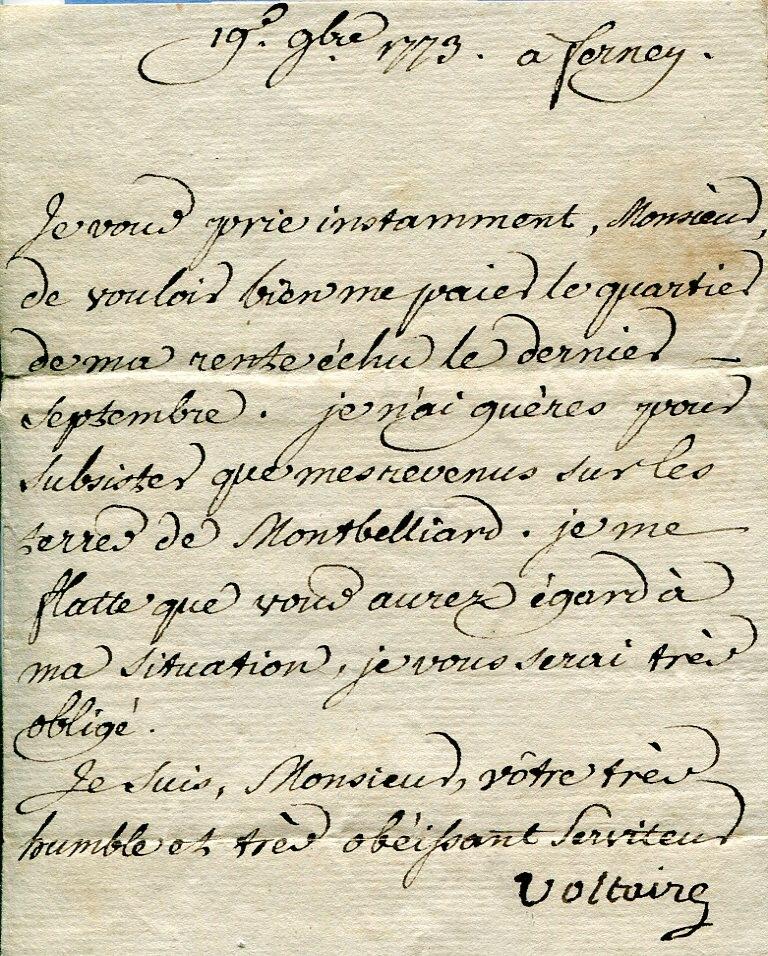 19e. 9bre. 1773. à ferney.
Je vous prie instamment, Monsieur,
de vouloir bien me paier le quartier
de ma rente échu le dernier
septembre. je n'ai guères pour
subsister que mes revenus sur les
terres de Montbelliard. je me
flatte que vous aurez égard à
ma situation, je vous serai très
obligé.
Je suis, Monsieur, vôtre très
humble et très obéissant Serviteur
Voltaire